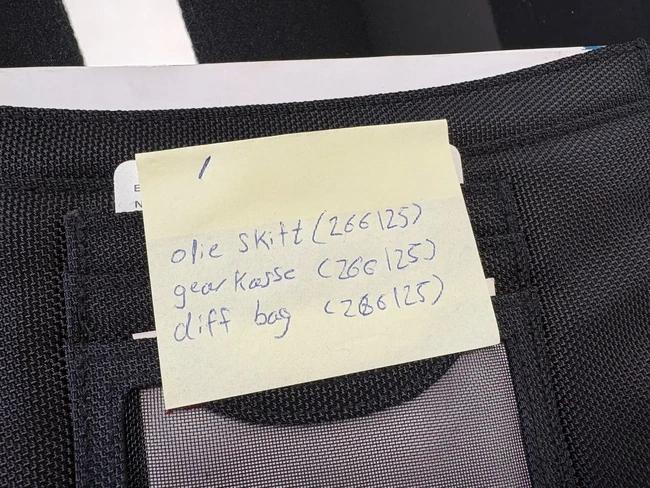 olie skift (266125)
gearkasse (266125)
diff bag (266125)